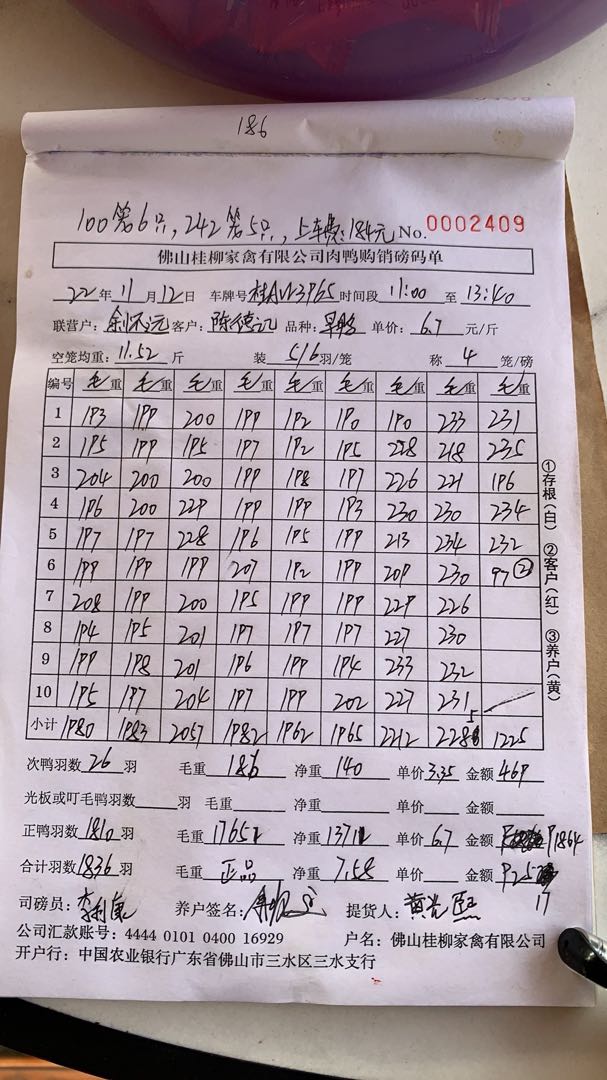 186
100第6只,242第5只,上车费:184元 No. 0002409
佛山桂柳家禽有限公司肉鸭购销磅码单
22年 11月 12日 车牌号 时间段 11:00 至 13:40
联营户: 余怀远 客户: 陈德记 品种: 单价: 6.7 元/斤
空笼均重: 11.52 斤 装 5/6 羽/笼 称 4 笼/磅
编号 毛重 毛重 毛重 毛重 毛重 毛重 毛重 毛重 毛重
1 193 199 200 199 192 190 190 233 231
2 195 199 195 197 192 195 228 218 235
3 204 200 200 199 198 197 226 221 196
4 196 200 229 199 199 193 230 230 234
5 197 197 228 196 195 199 213 234 232
6 199 199 199 207 192 199 209 230 97②
7 208 199 200 195 199 199 229 226
8 194 195 201 197 197 197 227 230
9 199 198 201 196 199 194 233 232
10 195 197 204 197 199 202 227 231
小计 1980 1983 2057 1982 1962 1965 2212 2285 1225
①存根(白) ②客户(红) ③养户(黄)
次鸭羽数 26 羽 毛重 186 净重 140 单价 3.35 金额 469
光板或叮毛鸭羽数 羽 毛重 净重 单价 金额
正鸭羽数 1810 羽 毛重 17651 净重 13711 单价 6.7 金额 91864
合计羽数 1836 羽 毛重 正品 净重 7.58 单价 金额 92517
司磅员: 养户签名: 提货人:
公司汇款账号: 4444 0101 0400 16929 户名: 佛山桂柳家禽有限公司
开户行: 中国农业银行广东省佛山市三水区三水支行